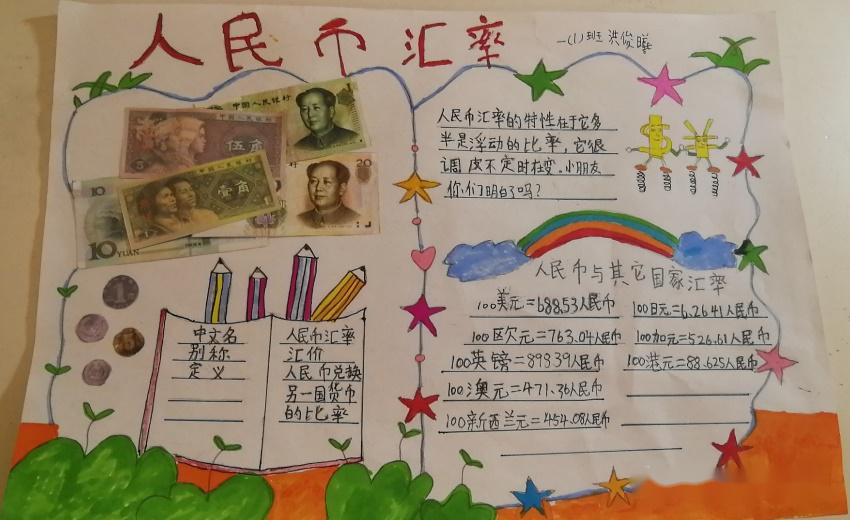 人民币汇率
一(1)班 洪俊曦
中国人民银行
1
5
伍角
20
壹角
10
10 YUAN
1
5
人民币汇率的特性在于它多
半是浮动的比率，它很
调皮不定时在变。小朋友
你们明白了吗？
人民币与其它国家汇率
100美元=688.53人民币
100日元=6.2641人民币
100欧元=763.04人民币
100加元=526.61人民币
100英镑=898.39人民币
100港元=88.625人民币
100澳元=471.36人民币
100新西兰元=454.08人民币
中文名
别称
定义
人民币汇率
汇价
人民币兑换
另一国货币
的比率